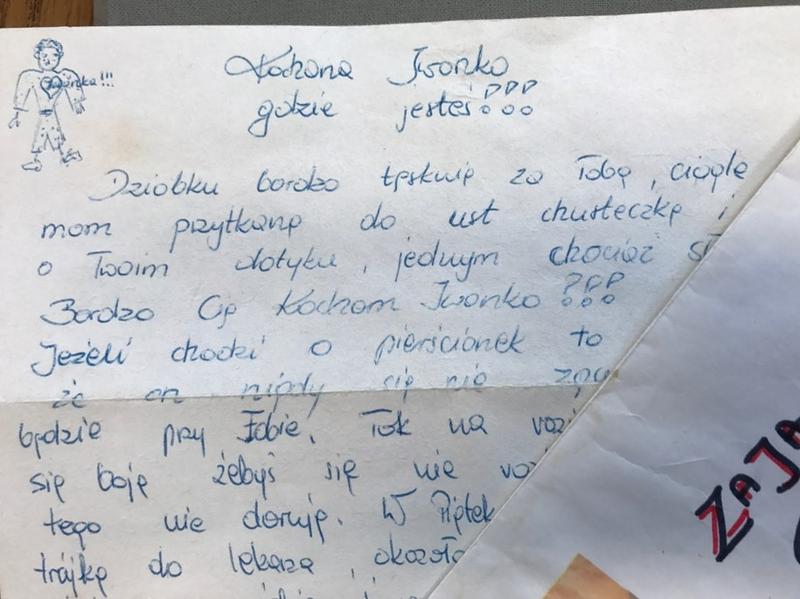 Iwonka!!!
Kochana Iwonko
gdzie jesteś???
Dziobku bardzo tęsknię za Tobą, ciągle
mam przytkaną do ust chusteczkę i
o Twoim dotyku, jednym chociaż
Bardzo Cię Kocham Iwonko???
Jeżeli chodzi o pierścionek to
że on nigdy się nie
będzie przy Tobie. Tak na
się boję żebyś się nie
tego nie daruję. W Piątek
trójkę do lekarza, okazało
ZAJA